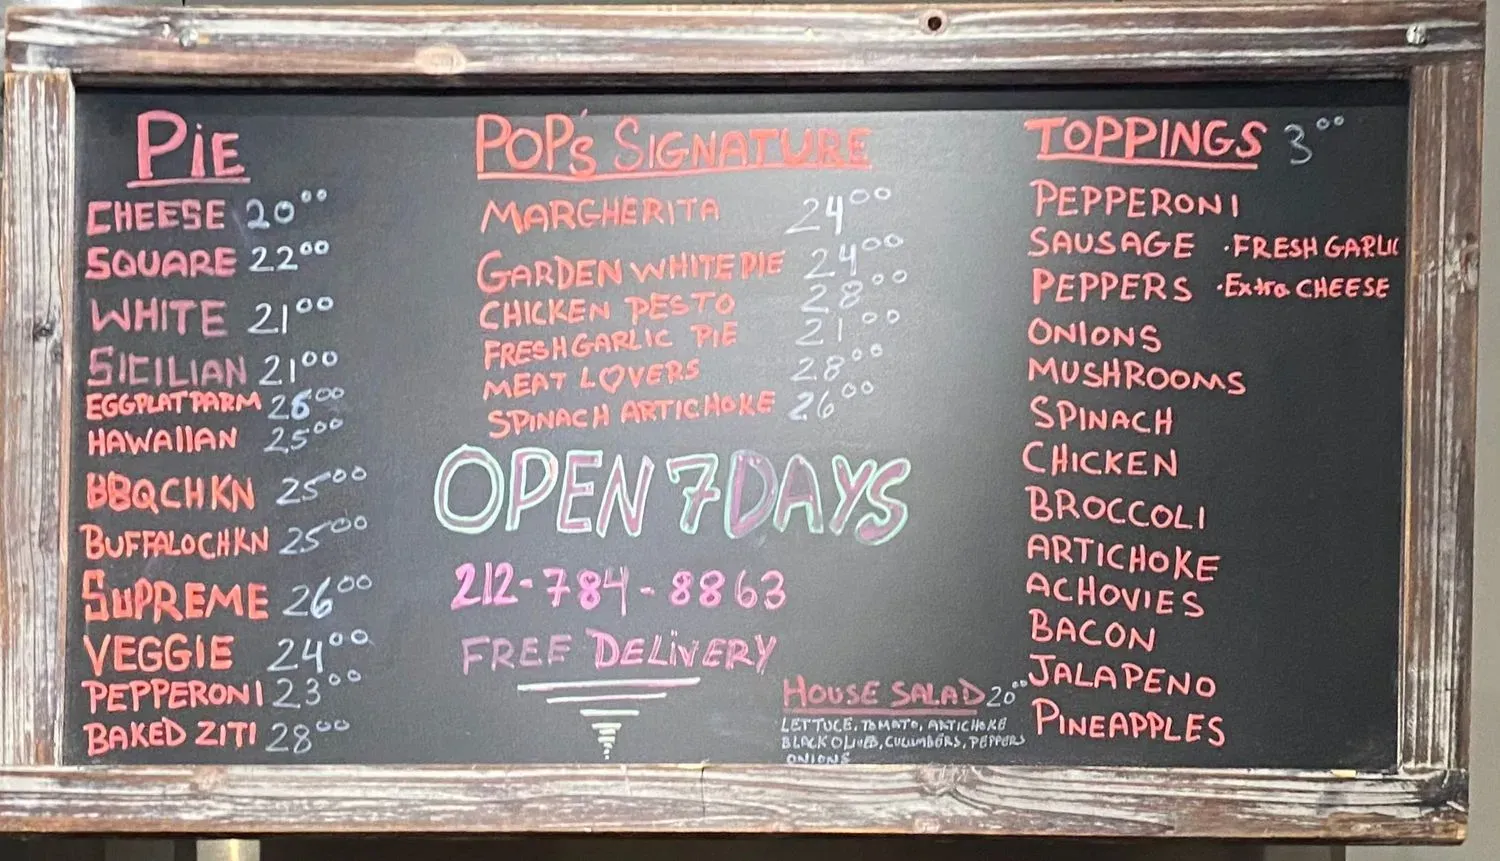 PiE
CHEESE 20⁰⁰
SQUARE 22⁰⁰
WHITE 21⁰⁰
SICILIAN 21⁰⁰
EGGPLATPARM 26⁰⁰
HAWAIIAN 25⁰⁰
BBQCHKN 25⁰⁰
BUFFALOCHKN 25⁰⁰
SUPREME 26⁰⁰
VEGGIE 24⁰⁰
PEPPERONI 23⁰⁰
BAKED ZITI 28⁰⁰
POP'S SIGNATURE
MARGHERITA 24⁰⁰
GARDEN WHITE PIE 24⁰⁰
CHICKEN PESTO 28⁰⁰
FRESH GARLIC PIE 21⁰⁰
MEAT LOVERS 28⁰⁰
SPINACH ARTICHOKE 26⁰⁰
OPEN 7 DAYS
212-784-8863
FREE DELiVERY
HOUSE SALAD 20⁰⁰
LETTUCE, TOMATO, ARTICHOKE
BLACK OLIVES, CUCUMBERS, PEPPERS
ONIONS
TOPPINGS 3⁰⁰
PEPPERONI
SAUSAGE ·FRESH GARLIC
PEPPERS ·Extra CHEESE
ONIONS
MUSHROOMS
SPINACH
CHICKEN
BROCCOLI
ARTICHOKE
ACHOVIES
BACON
JALAPENO
PINEAPPLES